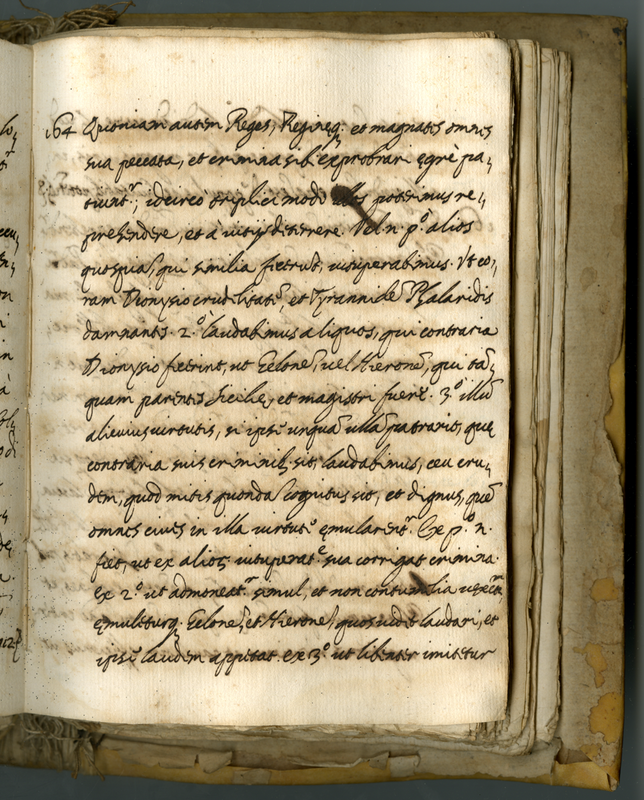 164 Quoniam autem Reges, Reginęq. et magnates omnes
sua peccata, et crimina sibi exprobrari ęgrè pa„
tiunt.r, idcircò triplici modo illos poterimus re„
prehendere, et à vitijs deterrere. Vel. n. p.o alios
quospiā, qui similia fecerūt, vituperabimus. Vt co„
ram Dionysio crudelitatē, et Tyrannidē Phalaridis
damnantes. 2.o laudabimus aliquos, qui contraria
Dionysio fecerint, ut Gelonē, vel Hieronē, qui tā„
quam parentes Sicilię, et magistri fuerē. 3.o illū
alicuius virtutis, si ipse unquā ullā patrarit, quę
contraria suis criminib. sit, laudabimus, ceu eru„
dem, quod mitis quondā cognitus sit, et dignus, quē
omnes cives in illa virtute ęmularent.r Ex p.o n.
fiet, ut ex alioꝝ vituperat.e sua corrigat crimina.
Ex 2.o ut admoneat.r simul, et non contumelia
ęmuleturq. Gelonē, et Hieronē, quos vidit laudari, et
ipse laudem appetat. ex 3.o ut libenter imitetur